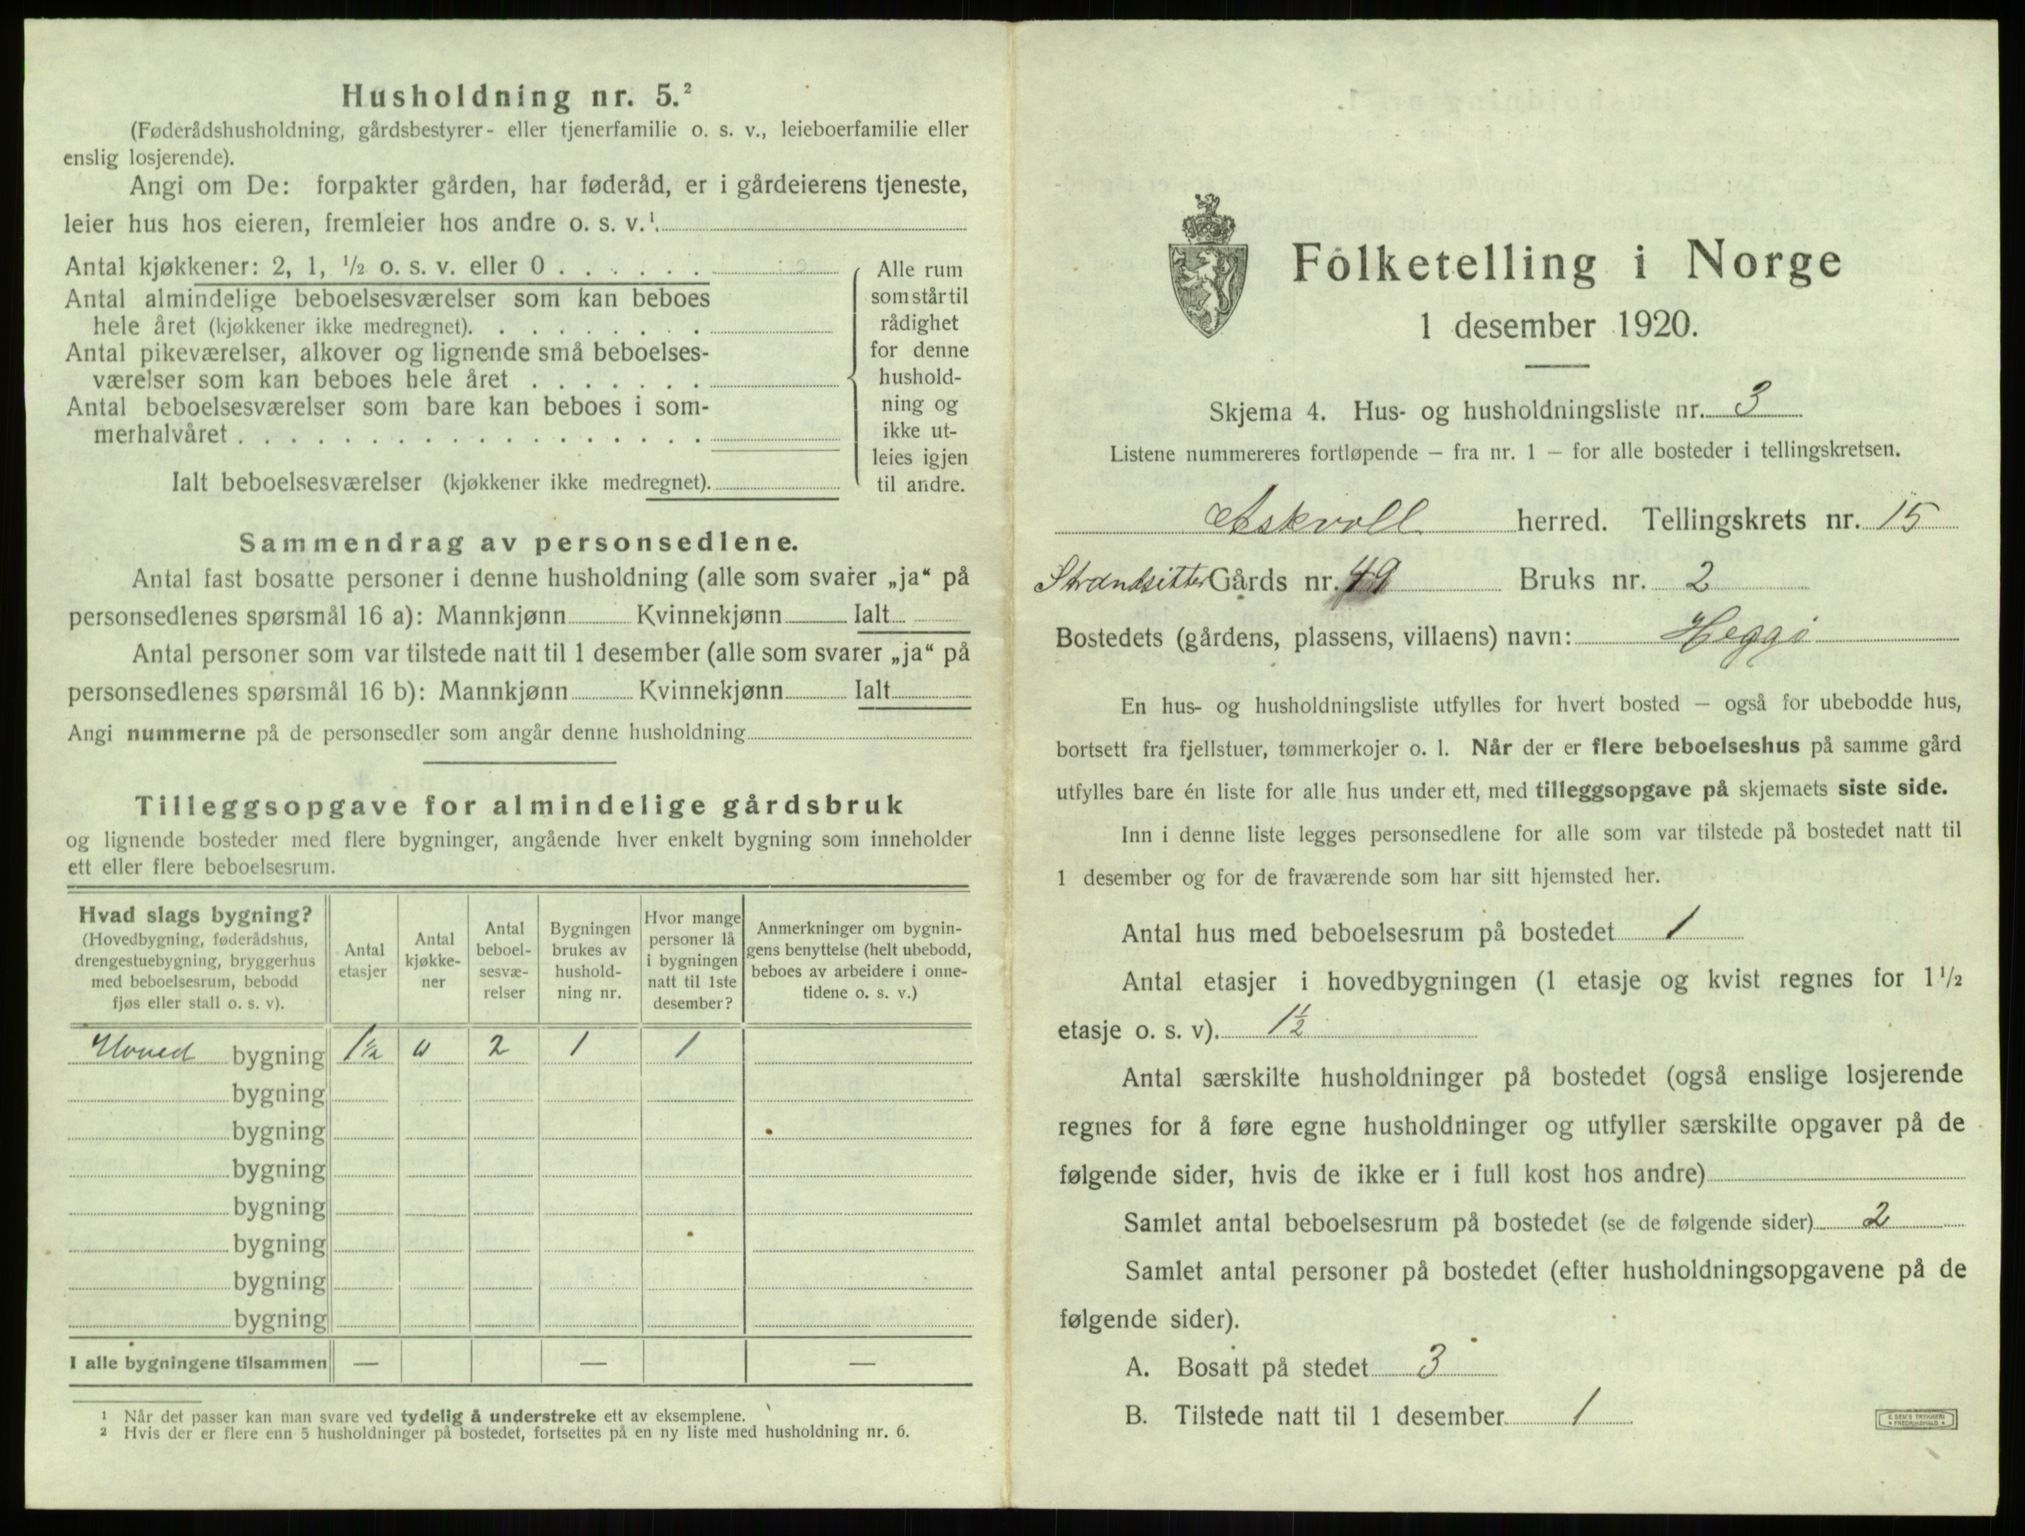 Husholdning nr. 5.²
(Føderådshusholdning, gårdsbestyrer- eller tjenerfamilie o. s. v., leieboerfamilie eller
enslig losjerende).
Angi om De: forpakter gården, har føderåd, er i gårdeierens tjeneste,
leier hus hos eieren, fremleier hos andre o. s. v.¹
Antal kjøkkener: 2, 1, ½ o. s. v. eller 0
Antal almindelige beboelsesværelser som kan beboes
hele året (kjøkkener ikke medregnet).
Antal pikeværelser, alkover og lignende små beboelses-
værelser som kan beboes hele året
Antal beboelsesværelser som bare kan beboes i som-
merhalvåret
Ialt beboelsesværelser (kjøkkener ikke medregnet).
Alle rum
som står til
rådighet
for denne
hushold-
ning og
ikke ut-
leies igjen
til andre.
Sammendrag av personsedlene.
Antal fast bosatte personer i denne husholdning (alle som svarer „ja“ på
personsedlenes spørsmål 16 a): Mannkjønn Kvinnekjønn Ialt
Antal personer som var tilstede natt til 1 desember (alle som svarer „ja“ på
personsedlenes spørsmål 16 b): Mannkjønn Kvinnekjønn Ialt
Angi nummerne på de personsedler som angår denne husholdning
Tilleggsopgave for almindelige gårdsbruk
og lignende bosteder med flere bygninger, angående hver enkelt bygning som inneholder
ett eller flere beboelsesrum.
Hvad slags bygning?
(Hovedbygning, føderådshus,
drengestuebygning, bryggerhus
med beboelsesrum, bebodd
fjøs eller stall o. s. v).
Antal
etasjer
Antal
kjøkke-
ner
Antal
beboel-
sesvæ-
relser
Bygningen
brukes av
hushold-
ning nr.
Hvor mange
personer lå
i bygningen
natt til 1ste
desember?
Anmerkninger om bygnin-
gens benyttelse (helt ubebodd,
beboes av arbeidere i onne-
tidene o. s. v.)
Hoved bygning 1½ 0 2 1 1
bygning
bygning
bygning
bygning
bygning
bygning
bygning
I alle bygningene tilsammen — — —
¹ Når det passer kan man svare ved tydelig å understreke ett av eksemplene.
² Hvis der er flere enn 5 husholdninger på bostedet, fortsettes på en ny liste med husholdning nr. 6.
Folketelling i Norge
1 desember 1920.
Skjema 4. Hus- og husholdningsliste nr. 3
Listene nummereres fortløpende — fra nr. 1 — for alle bosteder i tellingskretsen.
Askvoll herred. Tellingskrets nr. 15
Strandsitter Gårds nr. 49 Bruks nr. 2
Bostedets (gårdens, plassens, villaens) navn: Heggö
En hus- og husholdningsliste utfylles for hvert bosted — også for ubebodde hus,
bortsett fra fjellstuer, tømmerkojer o. l. Når der er flere beboelseshus på samme gård
utfylles bare én liste for alle hus under ett, med tilleggsopgave på skjemaets siste side.
Inn i denne liste legges personsedlene for alle som var tilstede på bostedet natt til
1 desember og for de fraværende som har sitt hjemsted her.
Antal hus med beboelsesrum på bostedet 1
Antal etasjer i hovedbygningen (1 etasje og kvist regnes for 1 ½
etasje o. s. v). 1½
Antal særskilte husholdninger på bostedet (også enslige losjerende
regnes for å føre egne husholdninger og utfyller særskilte opgaver på de
følgende sider, hvis de ikke er i full kost hos andre)
Samlet antal beboelsesrum på bostedet (se de følgende sider) 2
Samlet antal personer på bostedet (efter husholdningsopgavene på de
følgende sider).
A. Bosatt på stedet 3
B. Tilstede natt til 1 desember 1